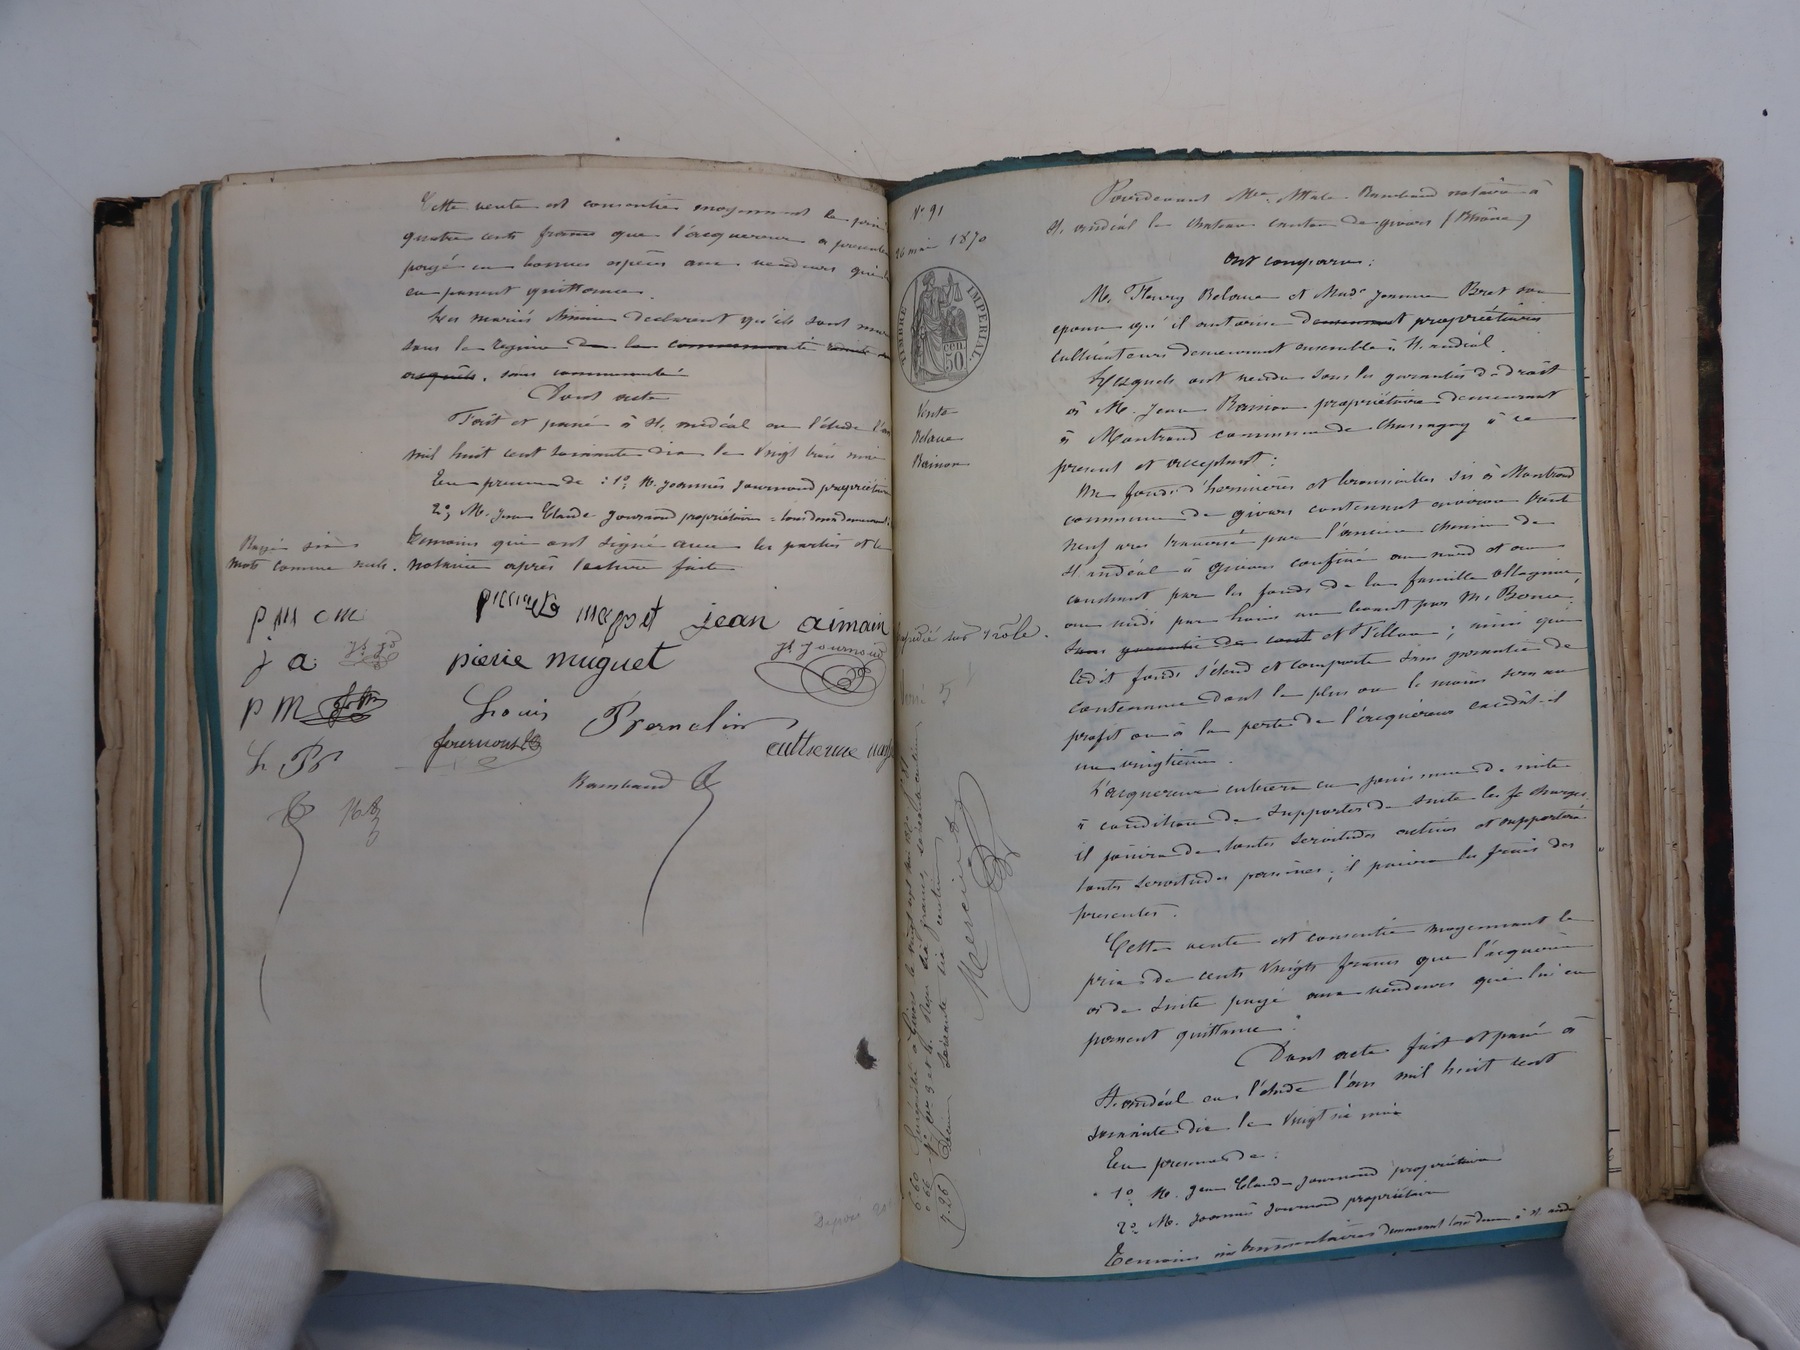 Cette vente est consentie moyennant le prix
quatre cents francs que l'acquereur a presente
payé en bonnes espèces aux vendeurs qui
en passent quittance.
Les mariés declarent qu'ils sont mariés
sous le regime de la communauté
acquêts. sans communauté
Dont acte
Fait et passé à St. andéol en l'étude l'an
mil huit cent soixante dix le vingt trois mai
En presence de : 1º M. Joannès Journoud propriétaire
2º, M. Jean Claude Journoud propriétaire = tous deux demeurant
temoins qui ont signé avec les parties et le
notaire après lecture faite
Rayé six
mots comme nuls.
p m c m
j a
p m
L Pr
jean aimain
pierre muguet
Jh Journoud
Louis Prernolin
Journoud
catherine
Rambaud
Depuis
Nº 91
26 mai 1870
TIMBRE IMPERIAL.
50 cen
Vente
Beloue
Rainon
expédié sur 1 rôle.
5
6 60
0 66
7.26
Enregistré à Givors le vingt
Reçu six francs soixante centimes
Decime soixante six centimes
Pardevant Me. Rambaud notaire à
St. andéol le chateau canton de givors (Rhône)
ont comparu :
M. Fleury Beloue et Made Jeanne Bret son
epouse qu'il autorise demeurant propriétaires
cultivateurs demeurant ensemble à St. andéol.
Lesquels ont vendu sous les garanties de droit
à M. Jean Rainon propriétaire demeurant
à Montrond commune de Chassagny à ce
present et acceptant :
Un fonds d'hermières et broussailles sis à Montrond
commune de givors contenant environ trente
neuf ares traversé par l'ancien chemin de
St. andéol à givors confiné au nord et au
couchant par les fonds de la famille ollagnier,
au midi par au levant par M.
sans garantie de cont et Tillon ; ainsi que
ledit fonds s'étend et comporte sans garantie de
contenance dont le plus ou le moins sera au
profit ou à la perte de l'acquéreur excédât-il
un vingtième.
L'acquereur entrera en jouissance de suite
à condition de supporter de suite les charges,
il jouira de toutes servitudes actives et supportera
toutes servitudes passives ; il paiera les frais des
presentes.
Cette vente est consentie moyennant le
prix de cents vingts francs que l'acquereur
a de suite payé aux vendeurs qui lui en
passent quittance.
Dont acte fait et passé à
St. andéol en l'étude l'an mil huit cent
soixante dix le vingt six mai
En presence de :
1º M. Jean Claude Journoud propriétaire
2º M. Joannès Journoud propriétaire
Temoins instrumentaires demeurant tous deux à St. andéol